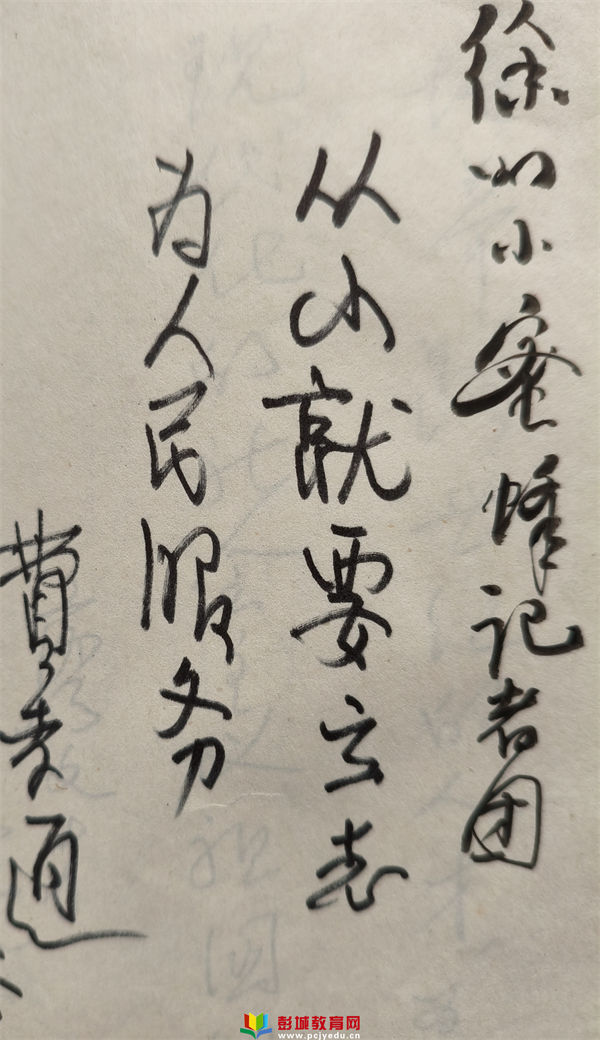 徐州小蜜蜂记者团
从小就要立志
为人民服务
費孝通
彭城教育网
www.pcjyedu.cn